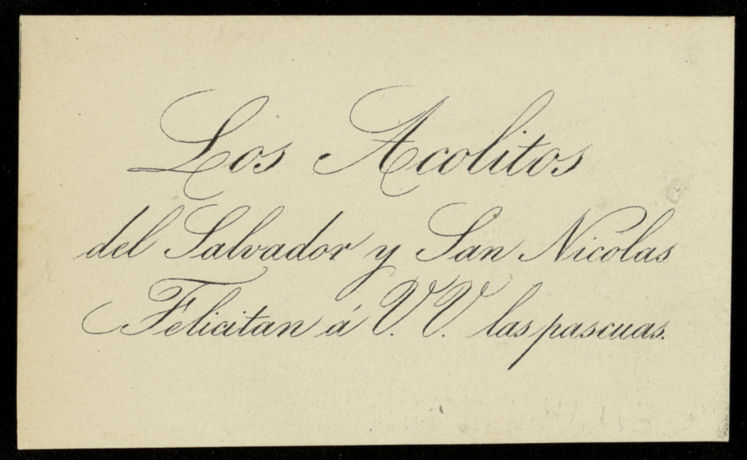 Los Acolitos
del Salvador y San Nicolas
Felicitan á V. V. las pascuas.